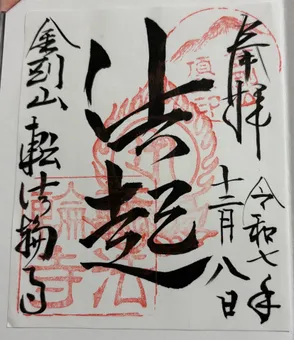 奉拝
令和七年
十二月八日
法起
金剛山 転法輪寺
頂
印